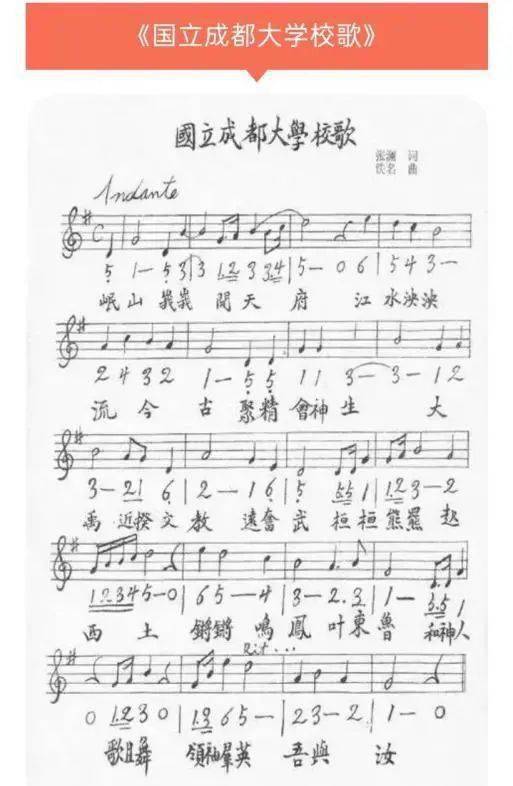 《国立成都大学校歌》
國立成都大學校歌
张澜 词
佚名 曲
Andante
5 1— 5 3 | 3 1.2 3 3.4 | 5— 0 6 | 5 4 3—
岷山 峩峩 開天 府 江 水泱泱
2 4 3 2 | 1— 5 5 | 1 1 3— | 3— 1 2
流 今 古 聚精 會神 生 大
3— 2 1 6 | 2—1 6 | 5 5.5 1 | 1.2 3—2
禹 近揆文 教 遠奮 武 桓桓 熊羆 起
1.2 3 4 5—0 | 6 5—4 | 3—2.3 | 1— 5.5 1
西 土 鏘鏘 鳴 鳳 叶東 魯 和神人
Rit...
0 1.2 3 0 | 1.3 6 5— | 2 3—2 | 1— 0
歌且舞 領袖羣英 吾與 汝